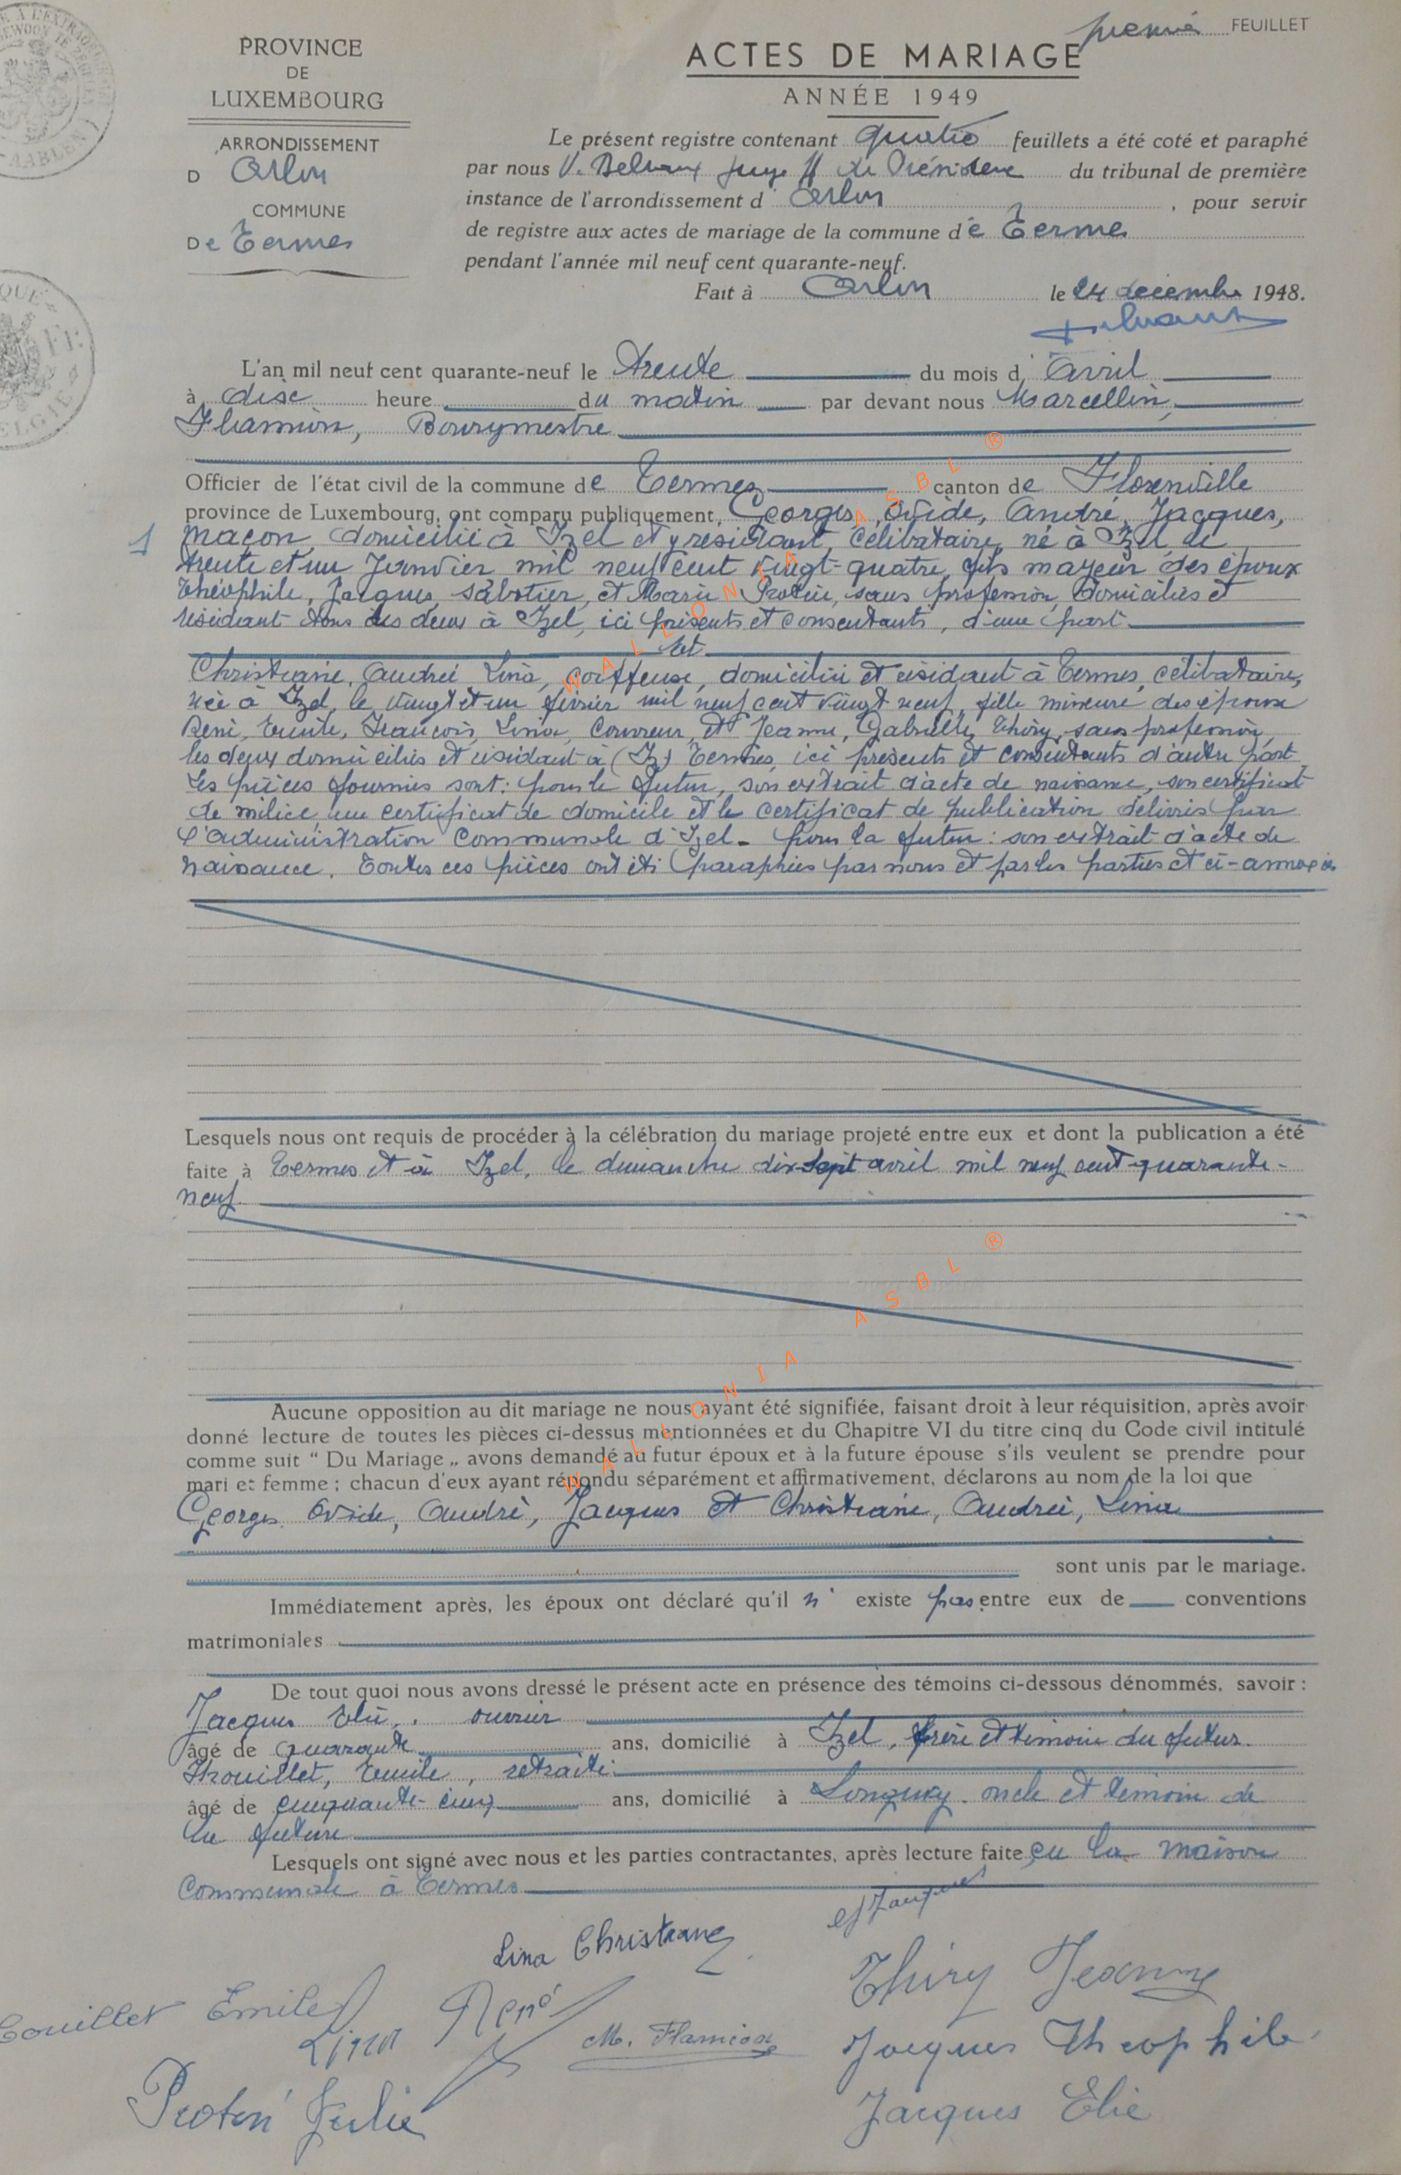 premier FEUILLET
PROVINCE
DE
LUXEMBOURG
ARRONDISSEMENT
D Arlon
COMMUNE
De Termes
ACTES DE MARIAGE
ANNÉE 1949
Le présent registre contenant quatre feuillets a été coté et paraphé
par nous V. Delvaux juge ff de Président du tribunal de première
instance de l'arrondissement d Arlon, pour servir
de registre aux actes de mariage de la commune de Termes
pendant l'année mil neuf cent quarante-neuf.
Fait à Arlon le 24 décembre 1948.
Delvaux
L'an mil neuf cent quarante-neuf le trente du mois d Avril
à dix heure du matin par devant nous Marcellin,
Flamion, Bourgmestre
Officier de l'état civil de la commune de Termes canton de Florenville
province de Luxembourg, ont comparu publiquement, Georges, Ovide, André, Jacques,
1 maçon, domicilié à Izel et y résidant, célibataire, né à Izel, le
trente et un Janvier mil neuf cent vingt-quatre, fils majeur des époux
Théophile, Jacques, sabotier, et Marie Protin, sans profession, domiciliés et
résidant tous les deux à Izel, ici présents et consentants, d'une part
et
Christiane, Andrée Lina, coiffeuse, domiciliée et résidant à Termes, célibataire,
née à Izel, le vingt et un février mil neuf cent vingt neuf, fille mineure des époux
René, Emile, François, Lina, couvreur, et Jeanne, Gabrielle, Thiry, sans profession,
les deux domiciliés et résidant à (Iz) Termes, ici présents et consentants d'autre part
Les pièces fournies sont: pour le futur, son extrait d'acte de naissance, son certificat
de milice, un certificat de domicile et le certificat de publication délivrés par
l'administration communale d'Izel. pour la future: son extrait d'acte de
naissance. Toutes ces pièces ont été paraphées par nous et par les parties et ci-annexées.
Lesquels nous ont requis de procéder à la célébration du mariage projeté entre eux et dont la publication a été
faite à Termes et à Izel, le dimanche dix-sept avril mil neuf cent quarante-
neuf
Aucune opposition au dit mariage ne nous ayant été signifiée, faisant droit à leur réquisition, après avoir
donné lecture de toutes les pièces ci-dessus mentionnées et du Chapitre VI du titre cinq du Code civil intitulé
comme suit “ Du Mariage „ avons demandé au futur époux et à la future épouse s'ils veulent se prendre pour
mari et femme ; chacun d'eux ayant répondu séparément et affirmativement, déclarons au nom de la loi que
Georges Ovide, André, Jacques et Christiane, Andrée, Lina
sont unis par le mariage.
Immédiatement après, les époux ont déclaré qu'il n' existe pas entre eux de conventions
matrimoniales
De tout quoi nous avons dressé le présent acte en présence des témoins ci-dessous dénommés, savoir :
Jacques Elie, ouvrier
âgé de quarante ans, domicilié à Izel, frère et témoin du futur.
Trouillet, Emile, retraité
âgé de cinquante-cinq ans, domicilié à Longwy. oncle et témoin de
la future
Lesquels ont signé avec nous et les parties contractantes, après lecture faite en la maison
Communale à Termes
Lina Christiane
G Jacques
Thiry Jeanne
Trouillet Emile
Lina René
M. Flamion
Jacques Théophile
Protin Julie
Jacques Elie
WALLONIA ASBL ®
WALLONIA ASBL ®